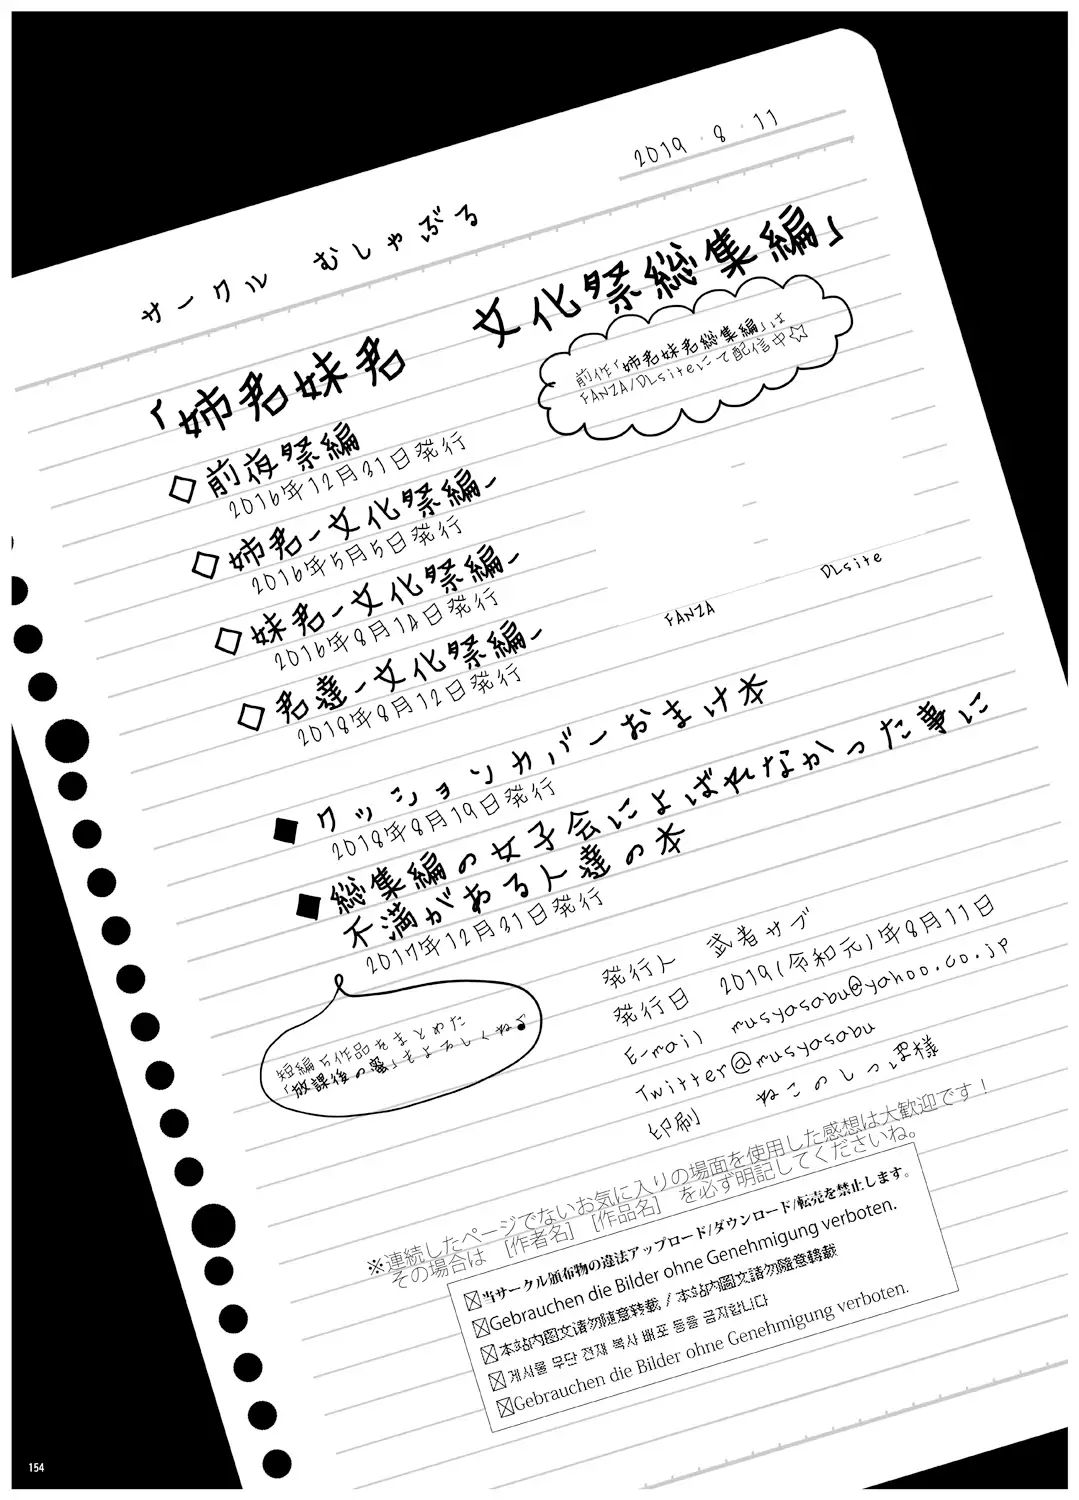 2019・8・11
サークル　むしゃぶる
「姉君妹君　文化祭総集編」
前作「姉君妹君総集編」は
FANZA/DLsiteにて配信中☆
◇前夜祭編
2016年12月31日発行
◇姉君-文化祭編-
2016年5月5日発行
◇妹君-文化祭編-
2016年8月14日発行
◇君達-文化祭編-
2018年8月12日発行
FANZA
DLsite
◆クッションカバーおまけ本
2018年8月19日発行
◆総集編の女子会によばれなかった事に
不満がある人達の本
2017年12月31日発行
短編5作品をまとめた
「放課後の蜜」もよろしくね♪
発行人　武者サブ
発行日　2019(令和元)年8月11日
E-mail　musyasabu@yahoo.co.jp
Twitter@musyasabu
印刷　ねこのしっぽ様
※連続したページでないお気に入りの場面を使用した感想は大歓迎です！
その場合は　[作者名]　[作品名]　を必ず明記してくださいね。
☒当サークル頒布物の違法アップロード/ダウンロード/転売を禁止します。
☒Gebrauchen die Bilder ohne Genehmigung verboten.
☒本站内图文请勿随意转载 / 本站內圖文請勿隨意轉載
☒게시물 무단 전재 복사 배포 등을 금지합니다
☒Gebrauchen die Bilder ohne Genehmigung verboten.
154